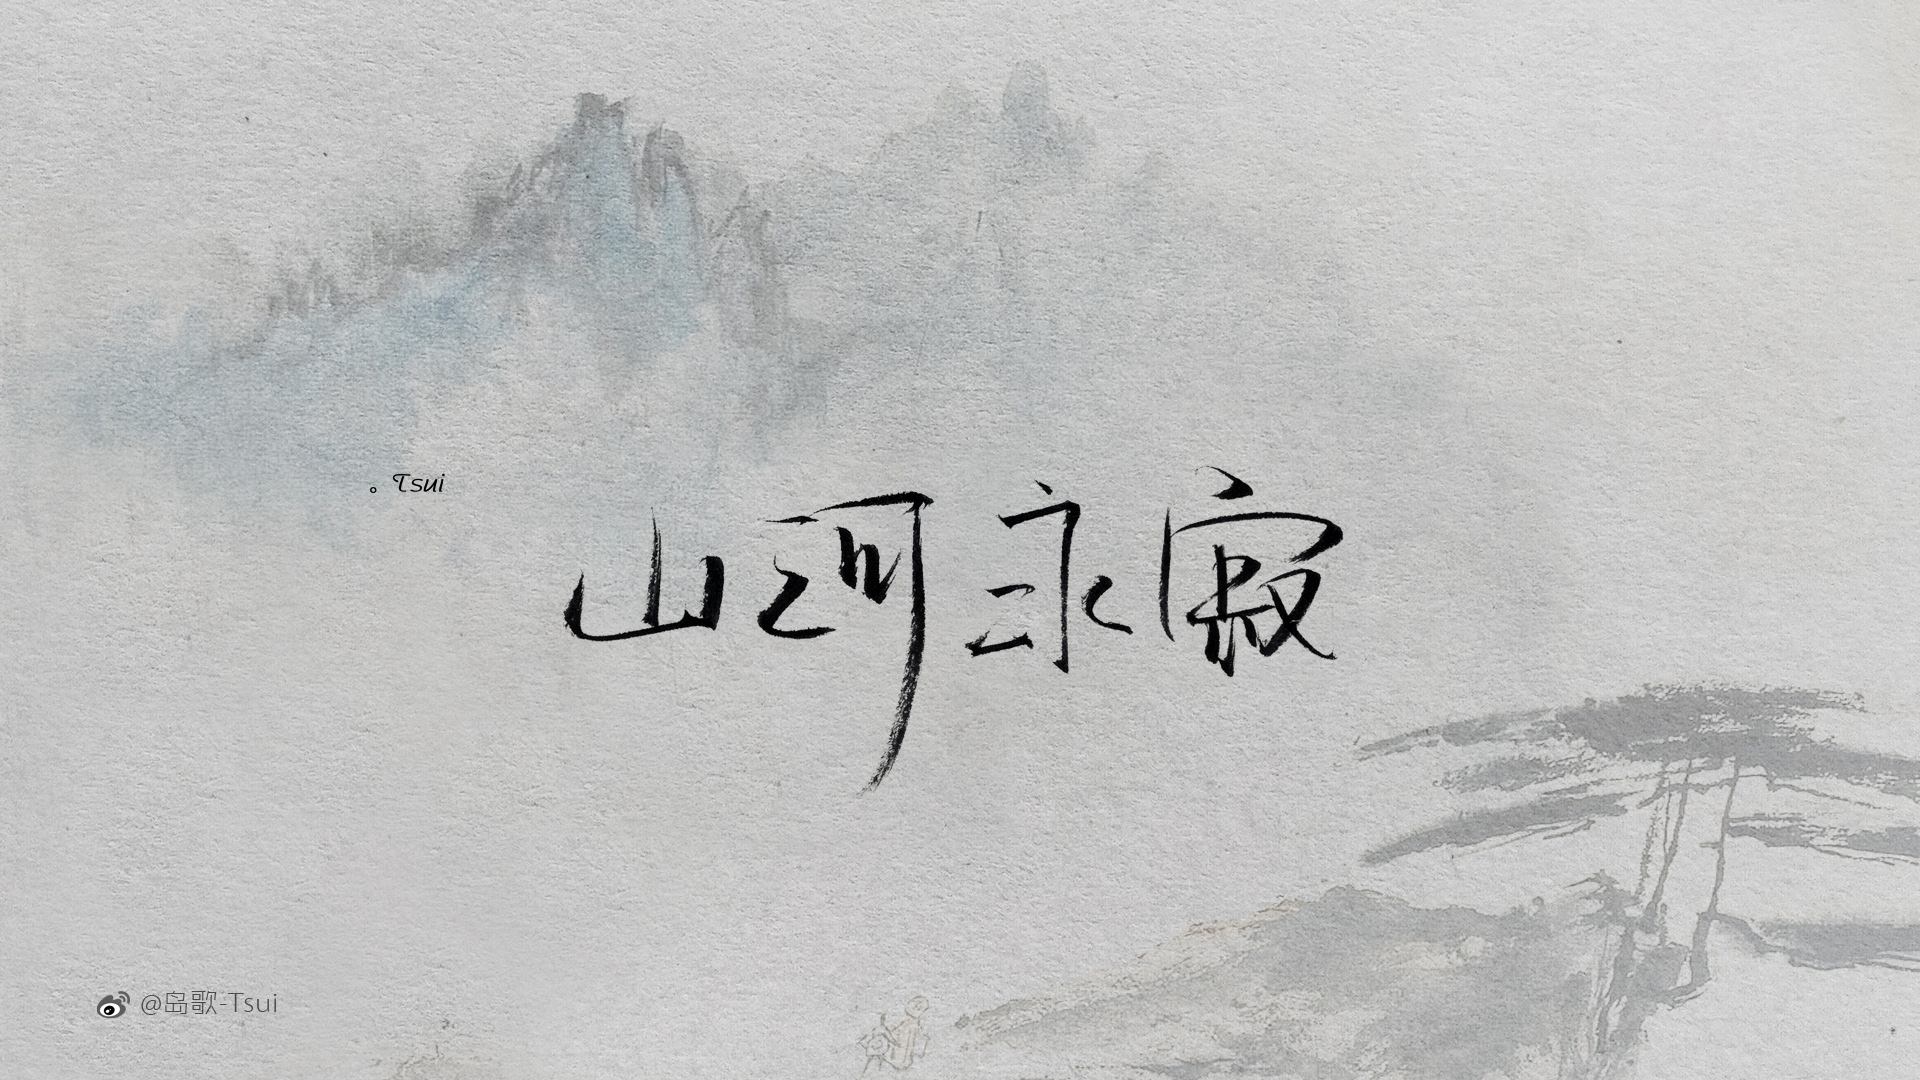 。Tsui
山河永寂
@岛歌-Tsui